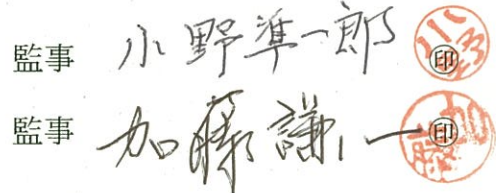 監事 小野準一郎 ㊞
監事 加藤謙一 ㊞